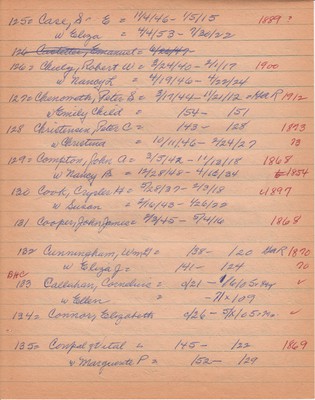 1250 Case, S. E = 1/4/46 - 1/5/15 1889 ?
w Eliza = 9/4/53 - 7/20/22
126 Custeter, Emanuel = 6/26/47
126 = Chiely, Robert W = 2/24/40 - 2/1/17 1900
w Nancy L = 2/19/46 - 4/22/24
127 = Chenoweth, Peter S = 3/17/44 - 11/21/12 GAR 1912
w Emily Child = 154 - 151
128 Christensen, Peter C = 143 - 128 1873
w Christina = 10/11/46 - 2/24/27 73
129 = Compton, John A = 3/5/42 - 11/13/18 1868
w Nancy B = 12/28/48 - 4/12/34 1854
130 Cook, Cryder H = 5/28/37 - 2/3/18 1897
w Susan = 2/16/43 - 4/26/22
131 Cooper, John James = 2/3/45 - 5/14/16 1868
132 Cunningham, Wm H = 138 - 120 GAR 1870
w Eliza J = 141 - 124 70
BHC
133 Callahan, Cornelius = d/21 - 1/6/05 ✓
w Ellen = - 7/2109
134 = Connor, Elizabeth d/26 - ✓
1350 Coupe, Vital = 145 - 122 1869
& Marguerite P = 152 - 129